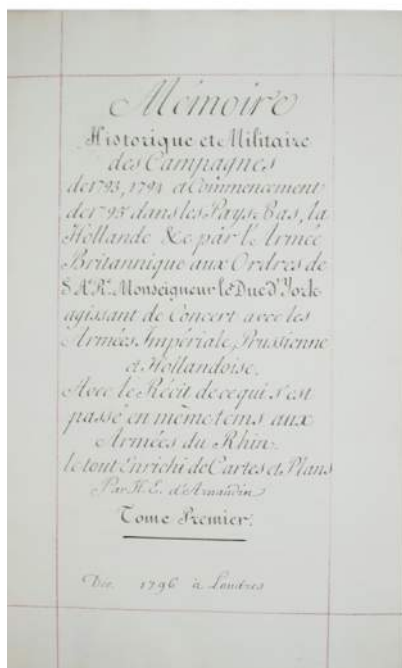 Mémoire
Historique et Militaire
des Campagnes
de 1793, 1794 et Commencement
de 1795 dans les Pays-Bas, la
Hollande &c par l'Armée
Britannique aux Ordres de
S. A. R. Monseigneur le Duc d'York
agissant de Concert avec les
Armées Impériale, Prussienne
et Hollandoise.
Avec le Récit de ce qui s'est
passé en même tems aux
Armées du Rhin.
le tout Enrichi de Cartes et Plans
Par H. E. d'Arnaudin
Tome Premier.
1796 à Londres